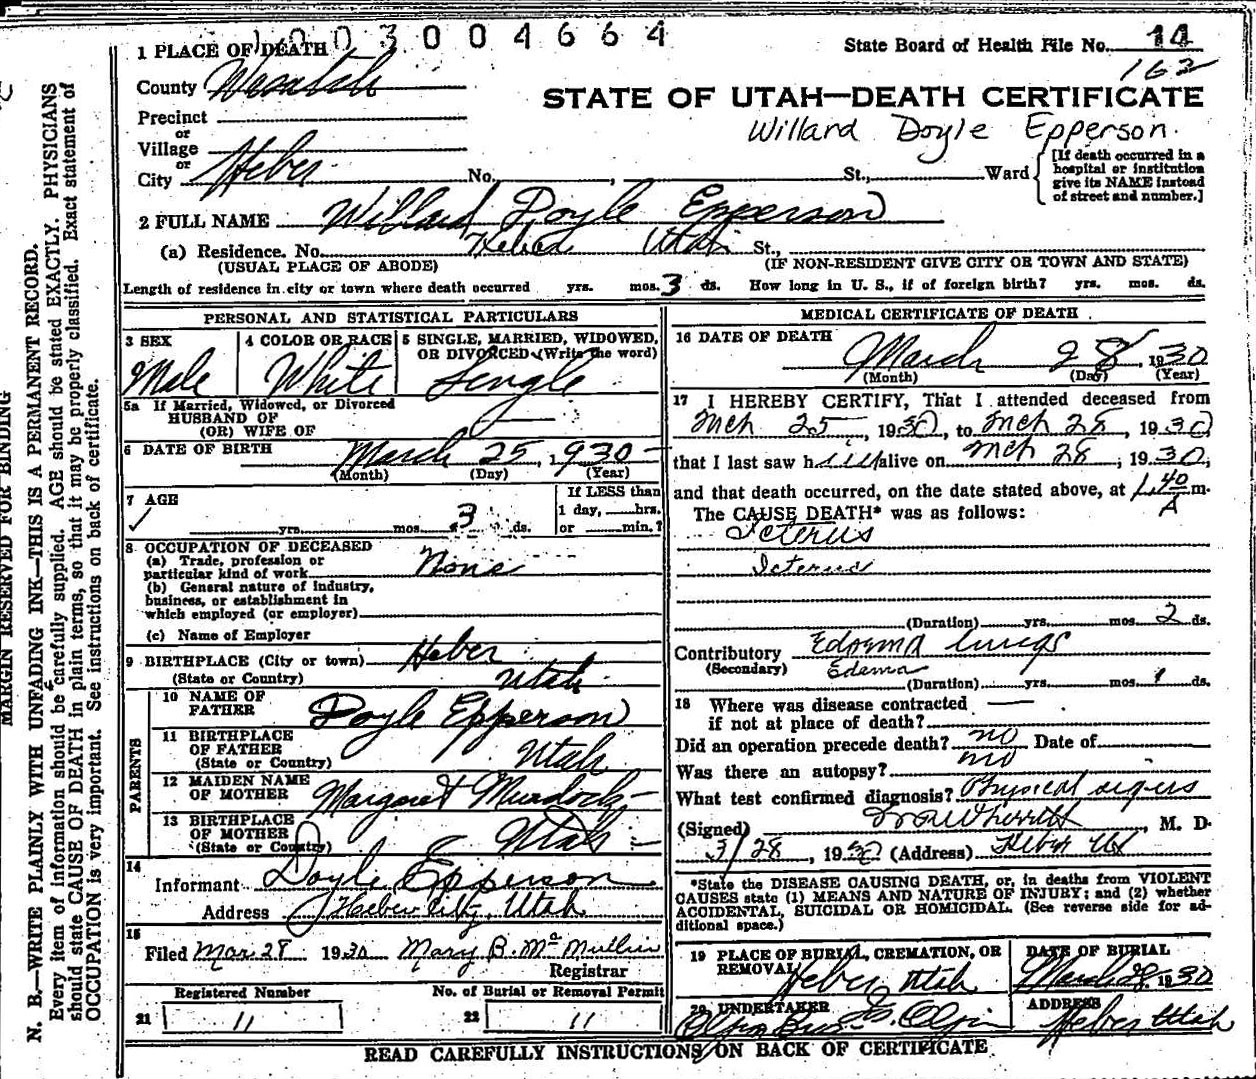 1003004664
1 PLACE OF DEATH
State Board of Health File No. 14
162
County Wasatch
STATE OF UTAH—DEATH CERTIFICATE
Precinct
or
Willard Doyle Epperson.
Village
or
City Heber No. , St., Ward
[If death occurred in a
hospital or institution
give its NAME instead
of street and number.]
2 FULL NAME Willard Doyle Epperson
(a) Residence. No. Heber Utah St.,
(USUAL PLACE OF ABODE) (IF NON-RESIDENT GIVE CITY OR TOWN AND STATE)
Length of residence in city or town where death occurred yrs. mos. 3 ds. How long in U. S., if of foreign birth? yrs. mos. ds.
PERSONAL AND STATISTICAL PARTICULARS
3 SEX Male
4 COLOR OR RACE White
5 SINGLE, MARRIED, WIDOWED,
OR DIVORCED (Write the word)
Single
5a If Married, Widowed, or Divorced
HUSBAND OF
(OR) WIFE OF —
6 DATE OF BIRTH March 25, 1930
(Month) (Day) (Year)
7 AGE
yrs. mos. 3 ds.
If LESS than
1 day, hrs.
or min.?
8 OCCUPATION OF DECEASED
(a) Trade, profession or
particular kind of work None
(b) General nature of industry,
business, or establishment in
which employed (or employer)
(c) Name of Employer
9 BIRTHPLACE (City or town) Heber
(State or Country) Utah
PARENTS
10 NAME OF
FATHER Doyle Epperson
11 BIRTHPLACE
OF FATHER
(State or Country) Utah
12 MAIDEN NAME
OF MOTHER Margaret Murdock
13 BIRTHPLACE
OF MOTHER
(State or Country) Utah
14
Informant Doyle Epperson
Address Heber City, Utah
15
Filed Mar. 28 1930 Mary B. McMullin
Registrar
Registered Number No. of Burial or Removal Permit
21 11 22 11
MEDICAL CERTIFICATE OF DEATH
16 DATE OF DEATH
March 28, 1930
(Month) (Day) (Year)
17 I HEREBY CERTIFY, That I attended deceased from
Mch 25, 1930, to Mch 28, 1930
that I last saw him alive on Mch 28, 1930,
and that death occurred, on the date stated above, at 1 40 A m.
The CAUSE DEATH* was as follows:
Icterus
Icterus
(Duration) yrs. mos. 2 ds.
Contributory Edoema lungs
(Secondary) Edema
(Duration) yrs. mos. 1 ds.
18 Where was disease contracted —
if not at place of death?
Did an operation precede death? no Date of
Was there an autopsy? no
What test confirmed diagnosis? Physical signs
(Signed) , M. D.
3/28, 1930 (Address) Heber Ut
*State the DISEASE CAUSING DEATH, or, in deaths from VIOLENT
CAUSES state (1) MEANS AND NATURE OF INJURY; and (2) whether
ACCIDENTAL, SUICIDAL OR HOMICIDAL. (See reverse side for ad-
ditional space.)
19 PLACE OF BURIAL, CREMATION, OR
REMOVAL Heber, Utah
DATE OF BURIAL
March 1930
20 UNDERTAKER
Olpin Bros. Olpin
ADDRESS
Heber Utah
READ CAREFULLY INSTRUCTIONS ON BACK OF CERTIFICATE
MARGIN RESERVED FOR BINDING
N. B.—WRITE PLAINLY WITH UNFADING INK—THIS IS A PERMANENT RECORD.
Every item of information should be carefully supplied. AGE should be stated EXACTLY. PHYSICIANS
should state CAUSE OF DEATH in plain terms, so that it may be properly classified. Exact statement of
OCCUPATION is very important. See instructions on back of certificate.